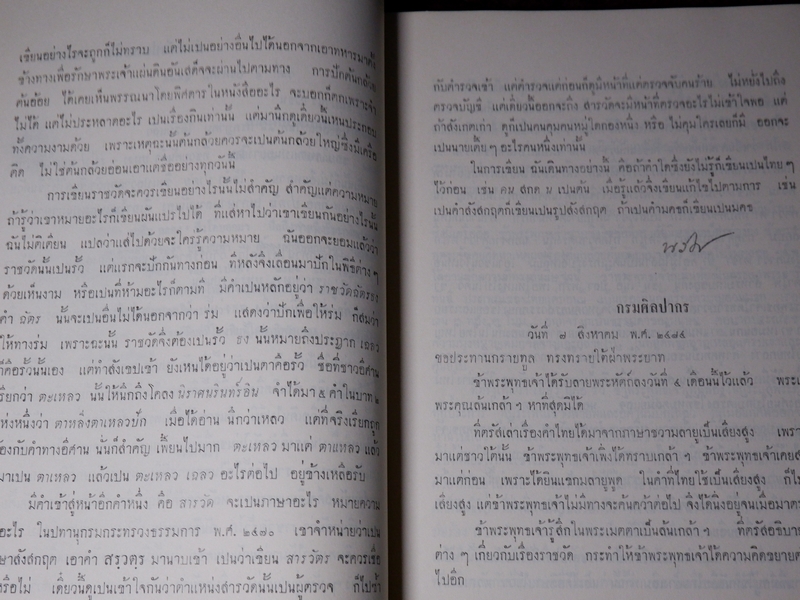 เขียนอย่างไรจะถูกก็ไม่ทราบ แต่ไม่เปนอย่างอื่นไปได้นอกจากเอาทหารมาตั้ง
ข้างทางเพื่อรักษาพระเจ้าแผ่นดินอันเสด็จจะผ่านไปตามทาง การปักต้นกล้วย
ต้นอ้อย ได้เคยเห็นพรรณนาโดยพิศดารในหนังสืออะไร จะบอกก็ตกเพราะจำ
ไม่ได้ แต่ไม่ประหลาดอะไร เปนเรื่องกินเท่านั้น แต่มานึกดูเดี๋ยวนี้เหนประกอบ
ทั้งความงามด้วย เพราะเหตุฉะนั้นต้นกล้วยควรจะเปนต้นกล้วยใหญ่ซึ่งมีเครือ
ติด ไม่ใช่ต้นกล้วยอ่อนเอาแต่ชื่ออย่างทุกวันนี้
การเขียนราชวัดจะควรเขียนอย่างไรนั้นไม่สำคัญ สำคัญแต่ความหมาย
ถ้ารู้ว่าเขาหมายอะไรก็เขียนผันแปรไปได้ ที่แส่หาไปว่าเขาเขียนกันอย่างไรนั้น
ฉันไม่ติเตียน แปลว่าแส่ไปด้วยจะใคร่รู้ความหมาย ฉันออกจะยอมแล้วว่า
ราชวัดนั้นเปนรั้ว แต่แรกจะปักกันทางก่อน ทีหลังจึงเลื่อนมาปักในพิธีต่าง ๆ
ด้วยเห็นงาม หรือเปนที่ห้ามอะไรก็ตามที มีคำเปนหลักอยู่ว่า ราชวัดฉัตรธง
คำ ฉัตร นั้นจะเปนอื่นไม่ได้นอกจากว่า ร่ม แสดงว่าปักเพื่อให้ร่ม ก็สมว่า
ให้ทางร่ม เพราะฉะนั้น ราชวัดจึงต้องเปนรั้ว ธง นั้นหมายถึงประฎาก เฉลว
ก็คือรั้วนั้นเอง แต่ทำสังเขปเข้า ยังเหนได้อยู่ว่าเปนตาคือรั้ว ชื่อที่ชาวอีศาน
เรียกว่า ตะเหลว นั้นให้นึกถึงโคลง นิราศนรินทร์อิน จำได้มา ๕ คำในบาท ๒
แห่งหนึ่งว่า ตาเหล็งตาเหลวปัก เมื่อได้อ่าน นึกว่าเหลว แต่ที่จริงเรียกถูก
ต้องกับคำทางอีศาน นั่นก็สำคัญ เพี้ยนไปมาก ตะเหลว มาแต่ ตาแหลว แล้ว
มาเปน ตาเหลว แล้วเปน ตะเหลว เฉลว อะไรต่อไป อยู่ข้างเหลือรับ
มีคำเข้าสู่หน้าอีกคำหนึ่ง คือ สารวัด จะเปนภาษาอะไร หมายความ
อะไร ในปทานุกรมกระทรวงธรรมการ พ.ศ. ๒๔๗๐ เขาจำหน่ายว่าเปน
ภาษาสังสกฤต เอาคำ สรฺวตฺร มานาบเข้า เปนว่าเขียน สารวัตร จะควรเชื่อ
หรือไม่ เดี๋ยวนี้ดูเปนเข้าใจกันว่าตำแหน่งสารวัดนั้นเปนผู้ตรวจ ก็ไปซ้ำ
กับตำรวจเข้า แต่ตำรวจแต่ก่อนก็ดูมีหน้าที่แต่ตรวจจับคนร้าย ไม่หยั่งไปถึง
ตรวจบัญชี แต่เดี๋ยวนี้ออกจะถึง สารวัดจะมีหน้าที่ตรวจอะไรไม่เข้าใจพอ แต่
ถ้าสังเกตเก่า ดูก็เปนคนคุมคนหมู่ใดกองหนึ่ง หรือ ไม่คุมใครเลยก็มี ออกจะ
เปนนายเตี้ย ๆ อะไรคนหนึ่งเท่านั้น
ในการเขียน ฉันเดินทางอย่างนี้ คือถ้าคำใดซึ่งยังไม่รู้ก็เขียนเปนไทย ๆ
ไว้ก่อน เช่น คน สกด น เปนต้น เมื่อรู้แล้วจึงเขียนแก้ไขไปตามการ เช่น
เปนคำสังสกฤตก็เขียนเปนรูปสังสกฤต ถ้าเปนคำมคธก็เขียนเปนมคธ
นริศ
กรมศิลปากร
วันที่ ๗ สิงหาคม พ.ศ. ๒๔๘๔
ขอประทานกราบทูล ทรงทราบใต้ฝ่าพระบาท
ข้าพระพุทธเจ้าได้รับลายพระหัตถ์ลงวันที่ ๕ เดือนนี้ไว้แล้ว พระเ
พระคุณล้นเกล้า ฯ หาที่สุดมิได้
ที่ตรัสเล่าเรื่องคำไทยได้มาจากภาษาชวามลายูเป็นเสียงสูง เพรา
มาแต่ชาวใต้นั้น ข้าพระพุทธเจ้าเพิ่งได้ทราบเกล้า ฯ ข้าพระพุทธเจ้าเคยส
มาแต่ก่อน เพราะได้ยินแขกมลายูพูด ในคำที่ไทยใช้เป็นเสียงสูง ก็ไ
เสียงสูง แต่ข้าพระพุทธเจ้าไม่มีทางจะค้นคว้าต่อไป จึงได้นิ่งอยู่จนเมื่อมาตร
ข้าพระพุทธเจ้ารู้สึกในพระเมตตาเป็นล้นเกล้า ฯ ที่ตรัสอธิบาย
ต่าง ๆ เกี่ยวกับเรื่องราชวัด กระทำให้ข้าพระพุทธเจ้าได้ความคิดขยายต
ไปอีก